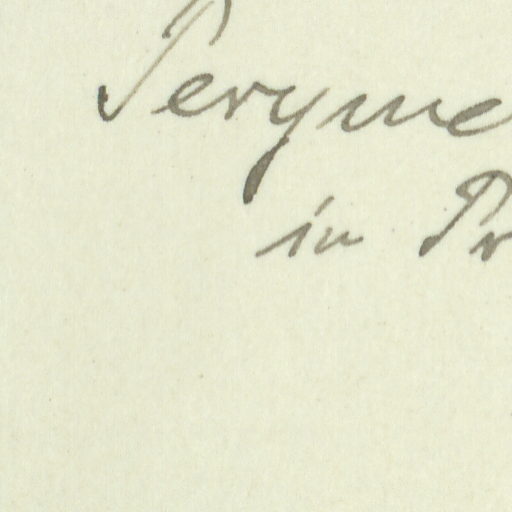 Peryme
in Pr